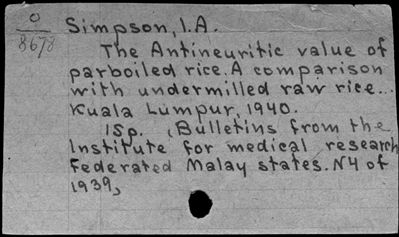 O
8678
Simpson, I.A.
The Antineuritic value of
parboiled rice. A comparison
with undermilled raw rice...
Kuala Lumpur, 1940.
15p. (Bulletins from the
Institute for medical research
Federated Malay states. N4 of
1939)